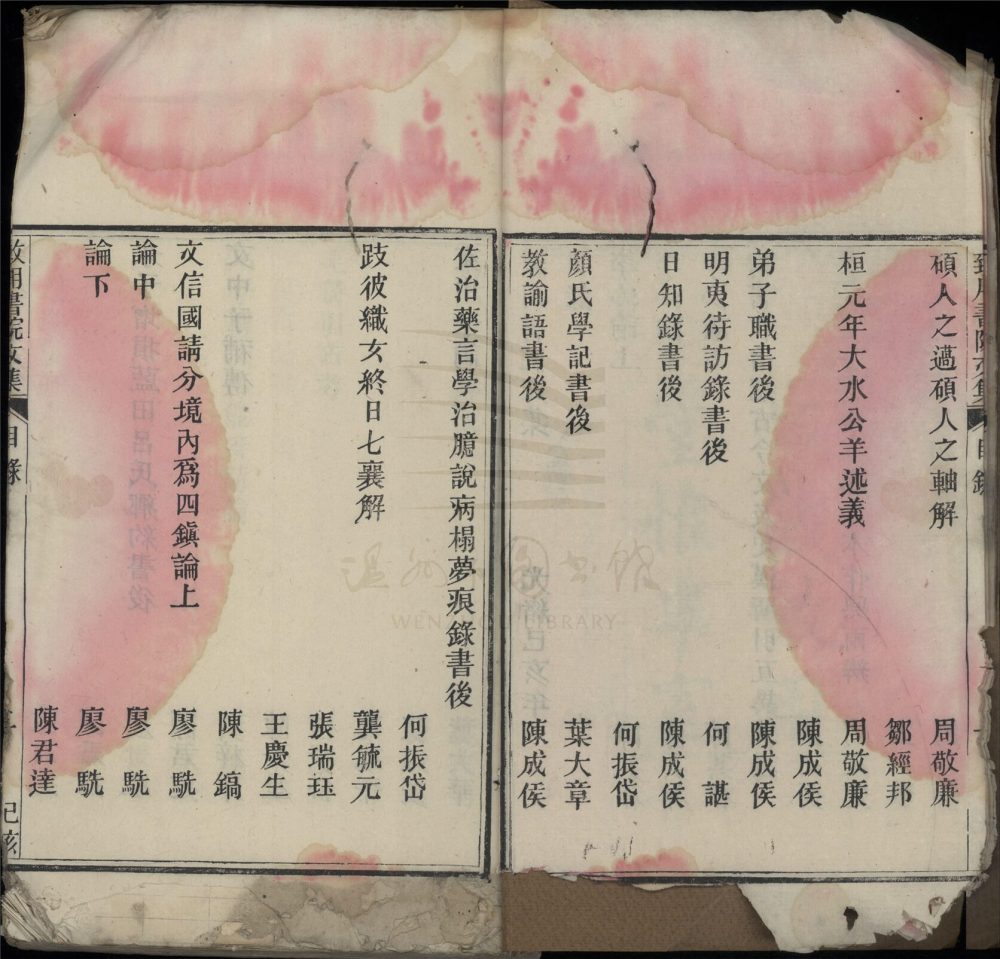 致用書院文集 目錄
碩人之薖碩人之軸解 周敬廉
鄒經邦
桓元年大水公羊述義 周敬廉
陳成侯
弟子職書後 陳成侯
明夷待訪錄書後 何諶
日知錄書後 陳成侯
何振岱
顏氏學記書後 葉大章
教諭語書後 陳成侯
佐治藥言學治臆說病榻夢痕錄書後
何振岱
跂彼織女終日七襄解 龔毓元
張瑞珏
王慶生
陳鎬
文信國請分境內爲四鎭論上 廖毓
論中 廖毓
論下 廖毓
陳君達
致用書院文集 目錄 己亥
WENZHOU LIBRARY